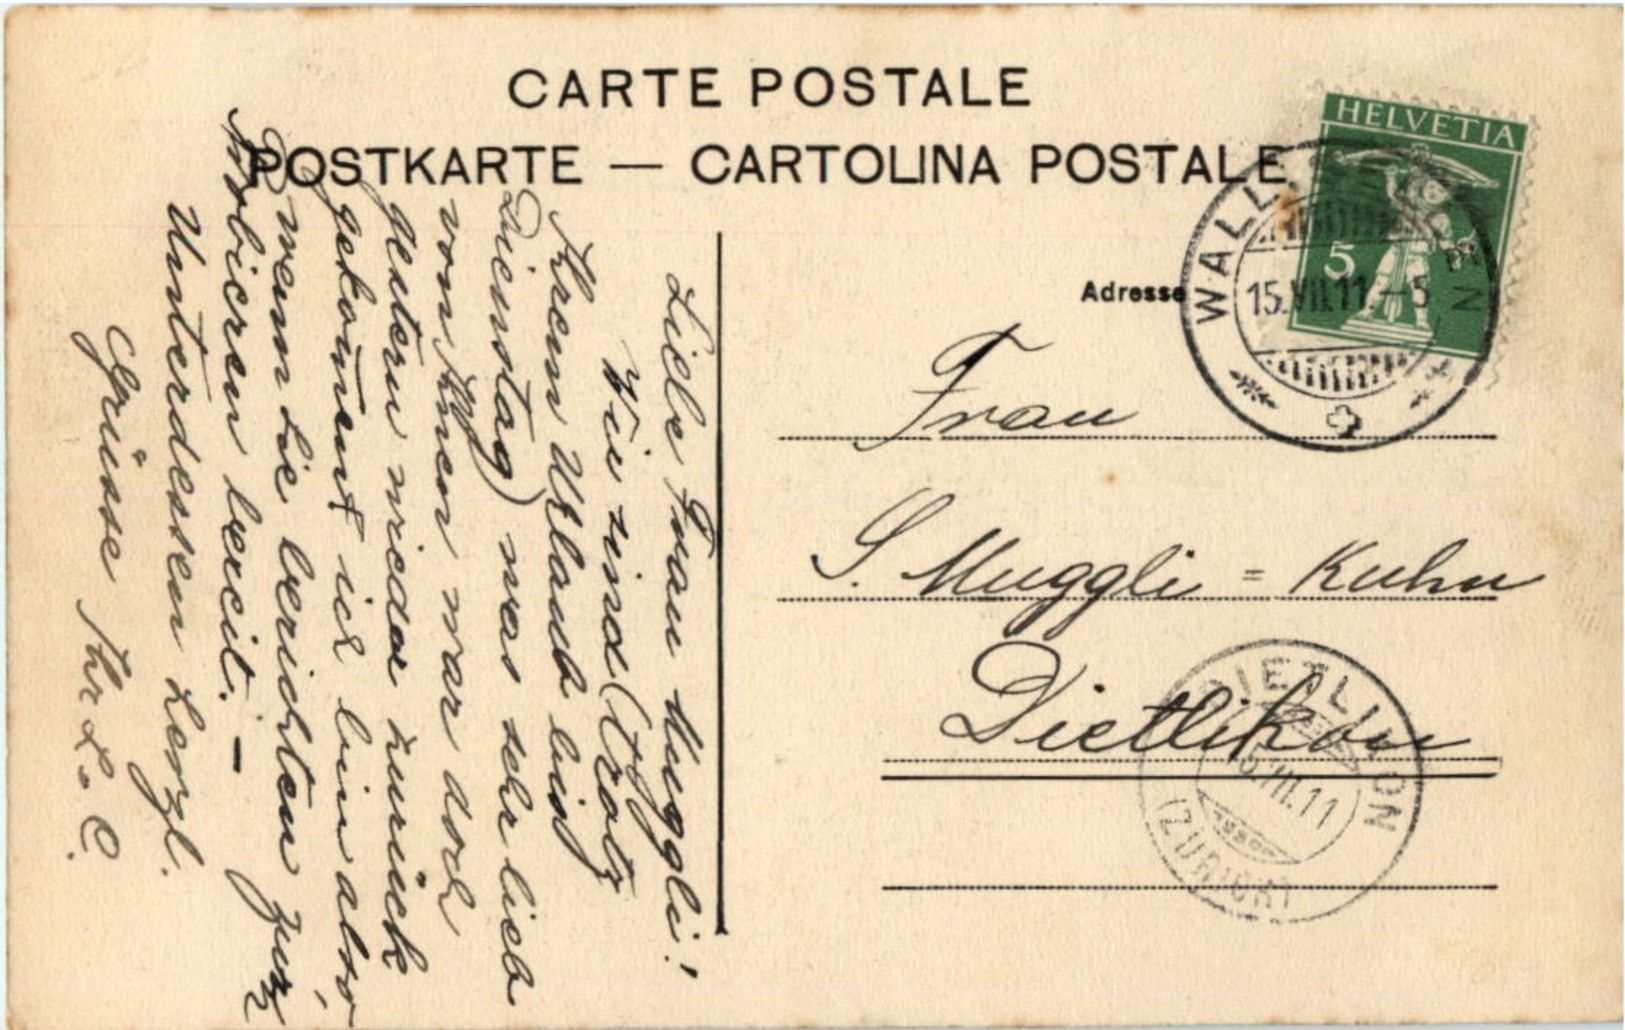 CARTE POSTALE
POSTKARTE — CARTOLINA POSTALE
HELVETIA
5
WALL EN
15.VII.11.–5
Adresse
Frau
S. Muggli = Kuhn
Dietlikon
DIETLIKON
VII.11
(ZÜRICH)
Liebe Frau Muggli!
Wir sind (trotz
Ihrem Urlaub bin
Dienstag) was sehr lieb
von Ihnen war doch
gestern wieder zurück
gekommen & ich bin also
wenn Sie berichten zum
Probieren bereit. –
Unterdessen herzl.
Grüsse Ihr L. C.